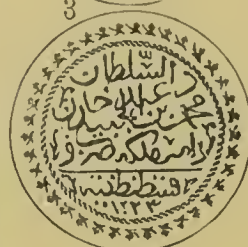 السّلطان
محمود بن عبد الحميد خان
دام ملكه ضرب في
قسطنطنية
١٢٢٣